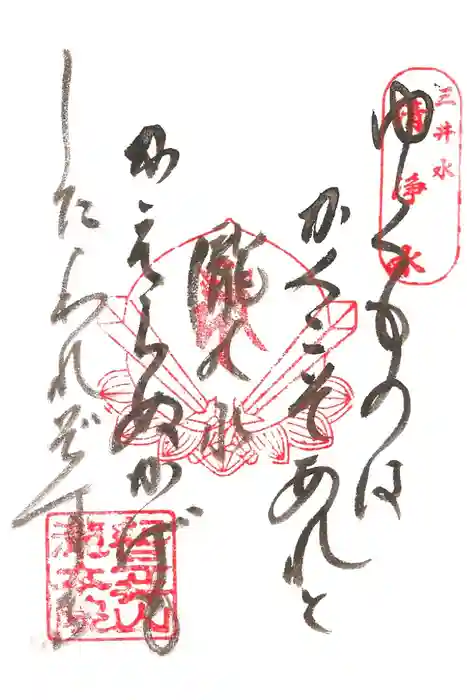 三井水
清浄水
ゆくものは
かくこそあれと
瀧の水
かえらぬかげも
したわれぞする